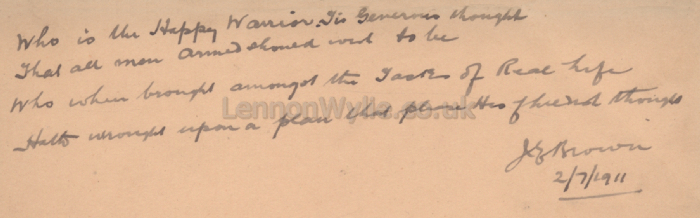 Who is the Happy Warrior. Tis Generous thought
That all men armed should wish to be
Who when brought amongst the Tasks of Real Life
Hath wrought upon a plan that please His thought
LennonWylie.co.uk
J E Brown
2/7/1911